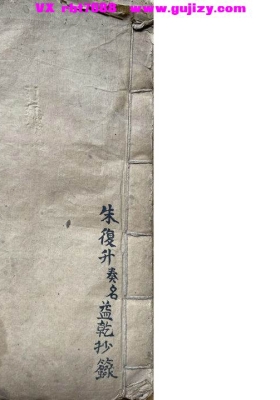 VX rht1888 www.gujizy.com
朱復升奏名益乾抄籙